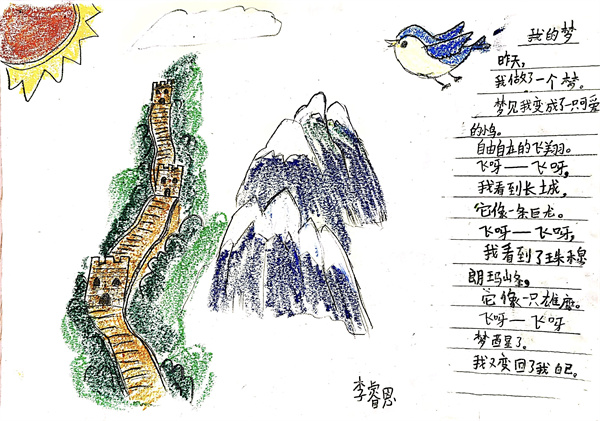 我的梦
昨天，
我做了一个梦。
梦见我变成了一只可爱
的小鸟。
自由自在的飞翔。
飞呀——飞呀，
我看到长城，
它像一条巨龙。
飞呀——飞呀，
我看到了珠穆
朗玛山峰，
它像一只雄鹰。
飞呀——飞呀
梦西星了。
我又变回了我自己。
李睿思